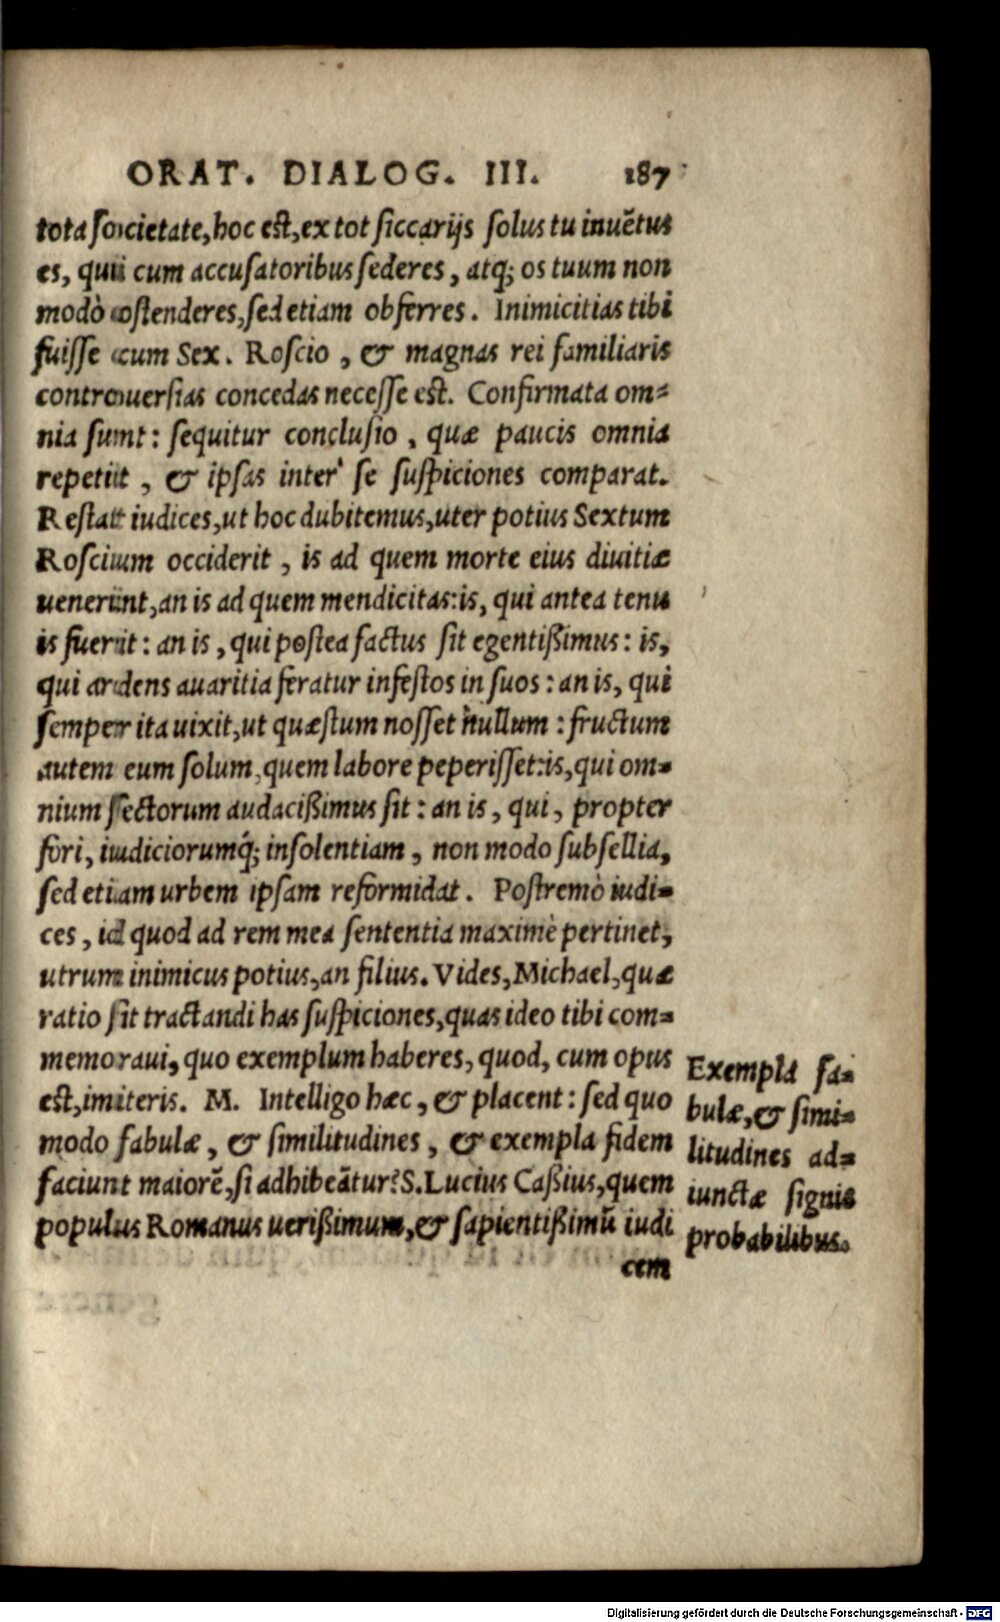 ORAT. DIALOG. III. 187
tota societate, hoc est, ex tot siccarijs solus tu inuẽtus
es, qui cum accusatoribus sederes, atq; os tuum non
modò ostenderes, sed etiam obferres. Inimicitias tibi
fuisse cum Sex. Roscio, & magnas rei familiaris
controuersias concedas necesse est. Confirmata om-
nia sunt: sequitur conclusio, quæ paucis omnia
repetit, & ipsas inter se suspiciones comparat.
Restat iudices, ut hoc dubitemus, uter potius Sextum
Roscium occiderit, is ad quem morte eius diuitiæ
uenerint, an is ad quem mendicitas: is, qui antea tenu
is fuerit: an is, qui postea factus sit egentißimus: is,
qui ardens auaritia feratur infestos in suos: an is, qui
semper ita uixit, ut quæstum nosset nullum: fructum
autem eum solum, quem labore peperisset: is, qui om-
nium sectorum audacißimus sit: an is, qui, propter
fori, iudiciorumq́; insolentiam, non modo subsellia,
sed etiam urbem ipsam reformidat. Postremò iudi-
ces, id quod ad rem mea sententia maximè pertinet,
utrum inimicus potius, an filius. Vides, Michael, quæ
ratio sit tractandi has suspiciones, quas ideo tibi com-
memoraui, quo exemplum haberes, quod, cum opus
est, imiteris. M. Intelligo hæc, & placent: sed quo
modo fabulæ, & similitudines, & exempla fidem
faciunt maiorẽ, si adhibeãtur? S. Lucius Caßius, quem
populus Romanus uerißimum, & sapientißimũ iudi
cem
Exempla fa-
bulæ, & simi-
litudines ad-
iunctæ signis
probabilibus.
Digitalisierung gefördert durch die Deutsche Forschungsgemeinschaft - DFG